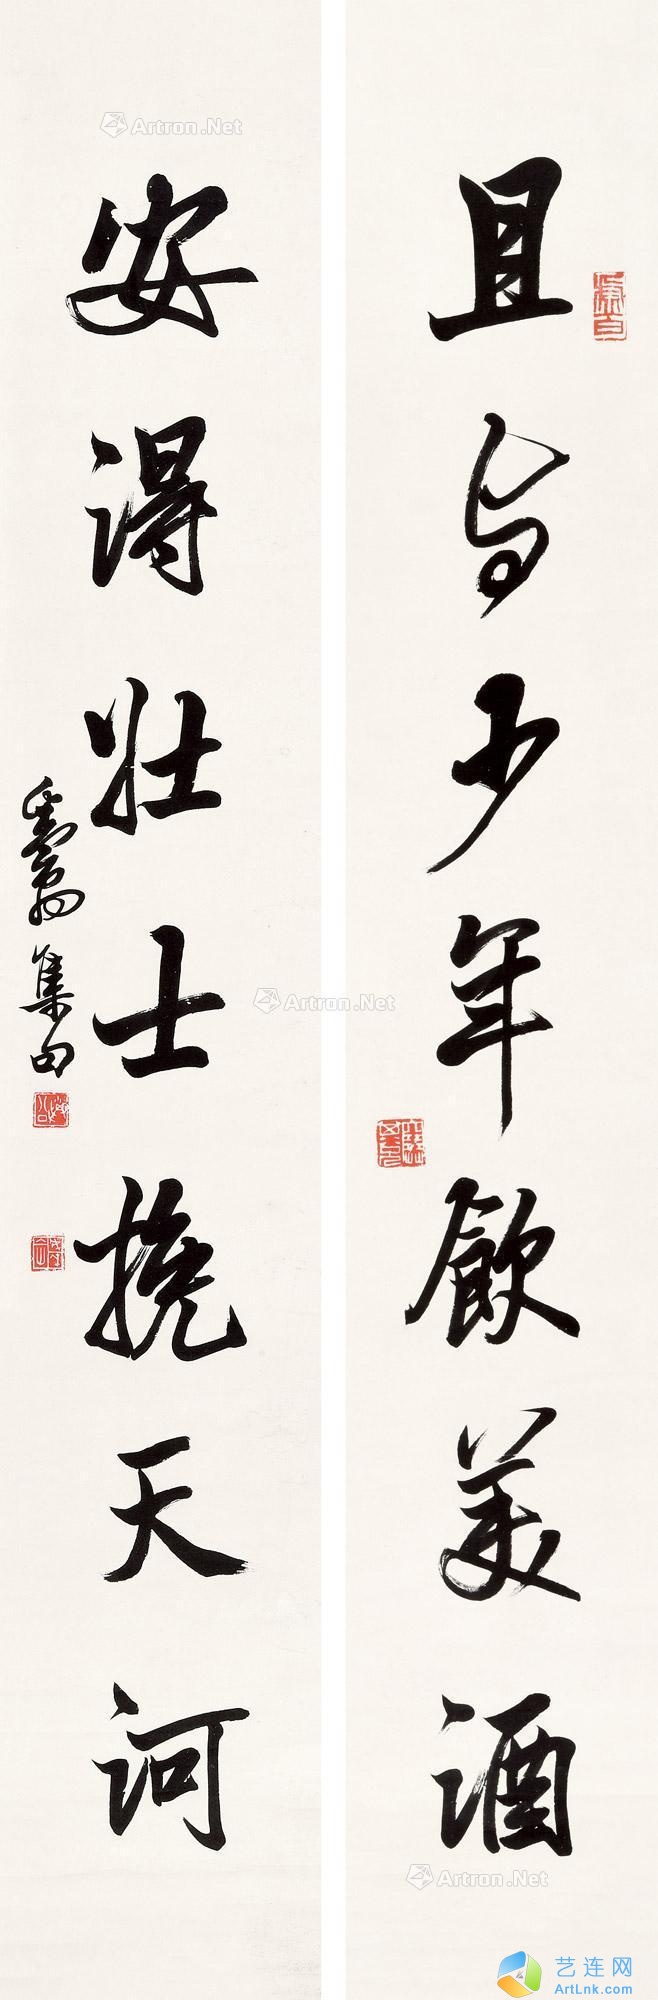 且与少年飲美酒
安得壯士挽天河
集句
Artron.Net
Artron.Net
Artron.Net
艺连网
ArtLnk.com